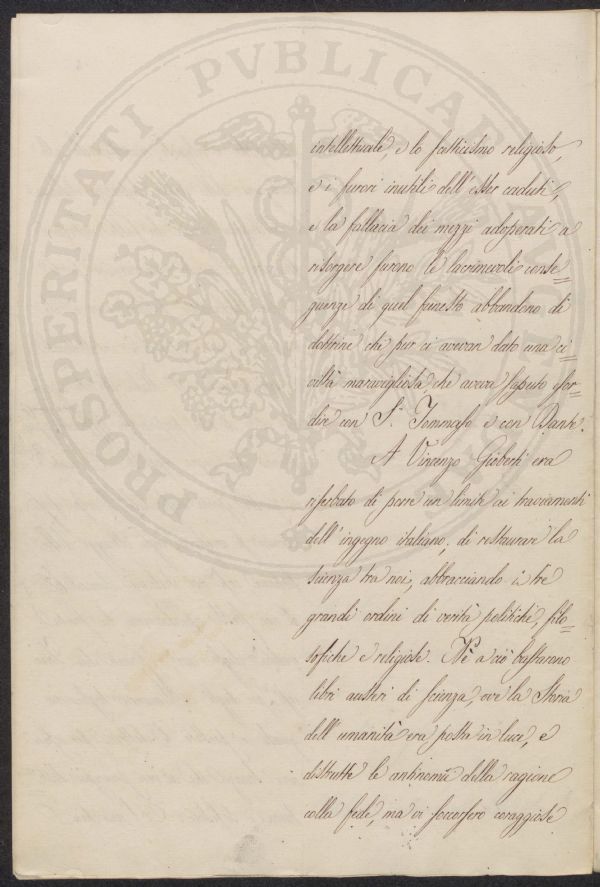 PROSPERITATI PVBLICAE
intellettuale, e lo scetticismo religioso,
e i furori inutili dell'esser caduti,
e la fallacia dei mezzi adoperati a
risorgere furono le lacrimevoli conse=
guenze di quel funesto abbandono di
dottrine che pur ci avevan dato una ci=
viltà maravigliosa, che aveva saputo esor=
dire con S. Tommaso e con Dante.
A Vincenzo Gioberti era
riserbato di porre un limite ai traviamenti
dell'ingegno italiano, di restaurare la
scienza tra noi, abbracciando i tre
grandi ordini di verità politiche, filo=
sofiche e religiose. Nè a ciò bastarono
libri austeri di scienza, ove la Storia
dell'umanità era posta in luce, e
distrutte le antinomie della ragione
colla fede, ma vi soccorsero coraggiose